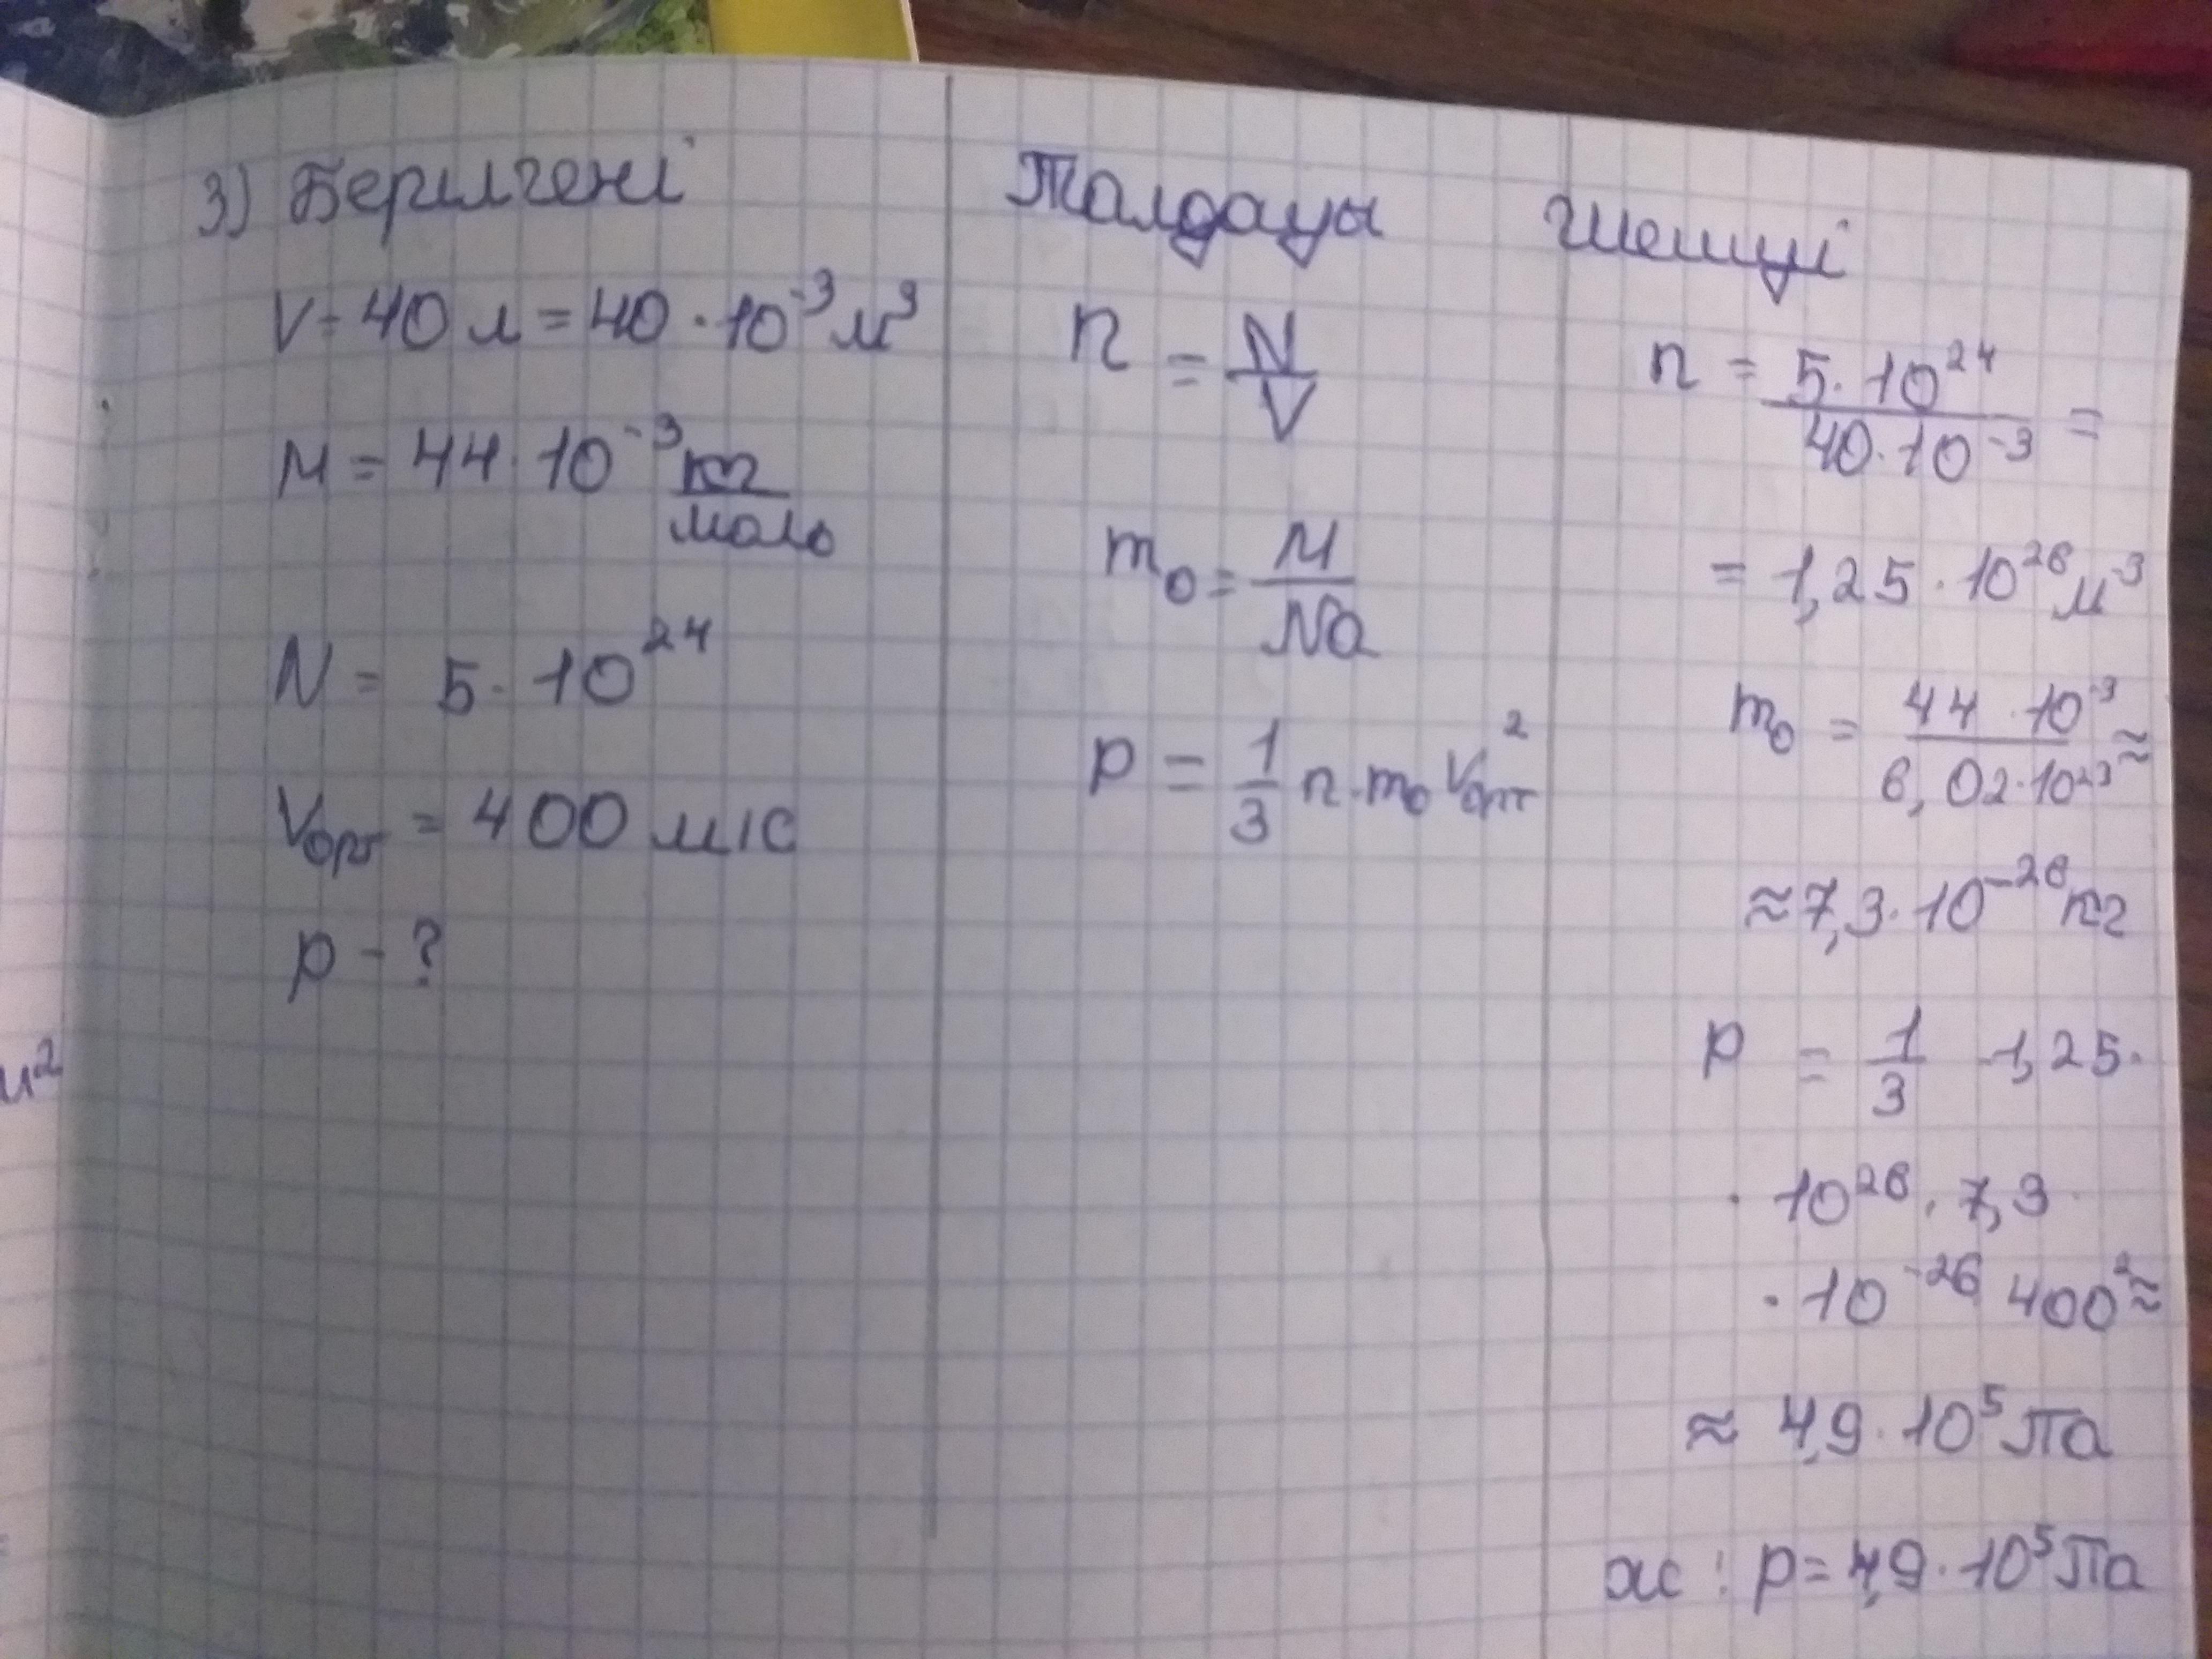 3) Берілгені
V = 40 л = 40 · 10⁻³ м³
M = 44 · 10⁻³ кг/моль
N = 5 · 10²⁴
Vорт = 400 м/с
p - ?
Талдауы
n = N/V
m₀ = M/Na
p = 1/3 n · m₀ Vорт²
Шешуі
n = 5 · 10²⁴ / 40 · 10⁻³ =
= 1,25 · 10²⁶ м⁻³
m₀ = 44 · 10⁻³ / 6,02 · 10²³ ≈
≈ 7,3 · 10⁻²⁶ кг
p = 1/3 · 1,25 ·
· 10²⁶ · 7,3
· 10⁻²⁶ 400² ≈
≈ 4,9 · 10⁵ Па
жс : p = 4,9 · 10⁵ Па
м²